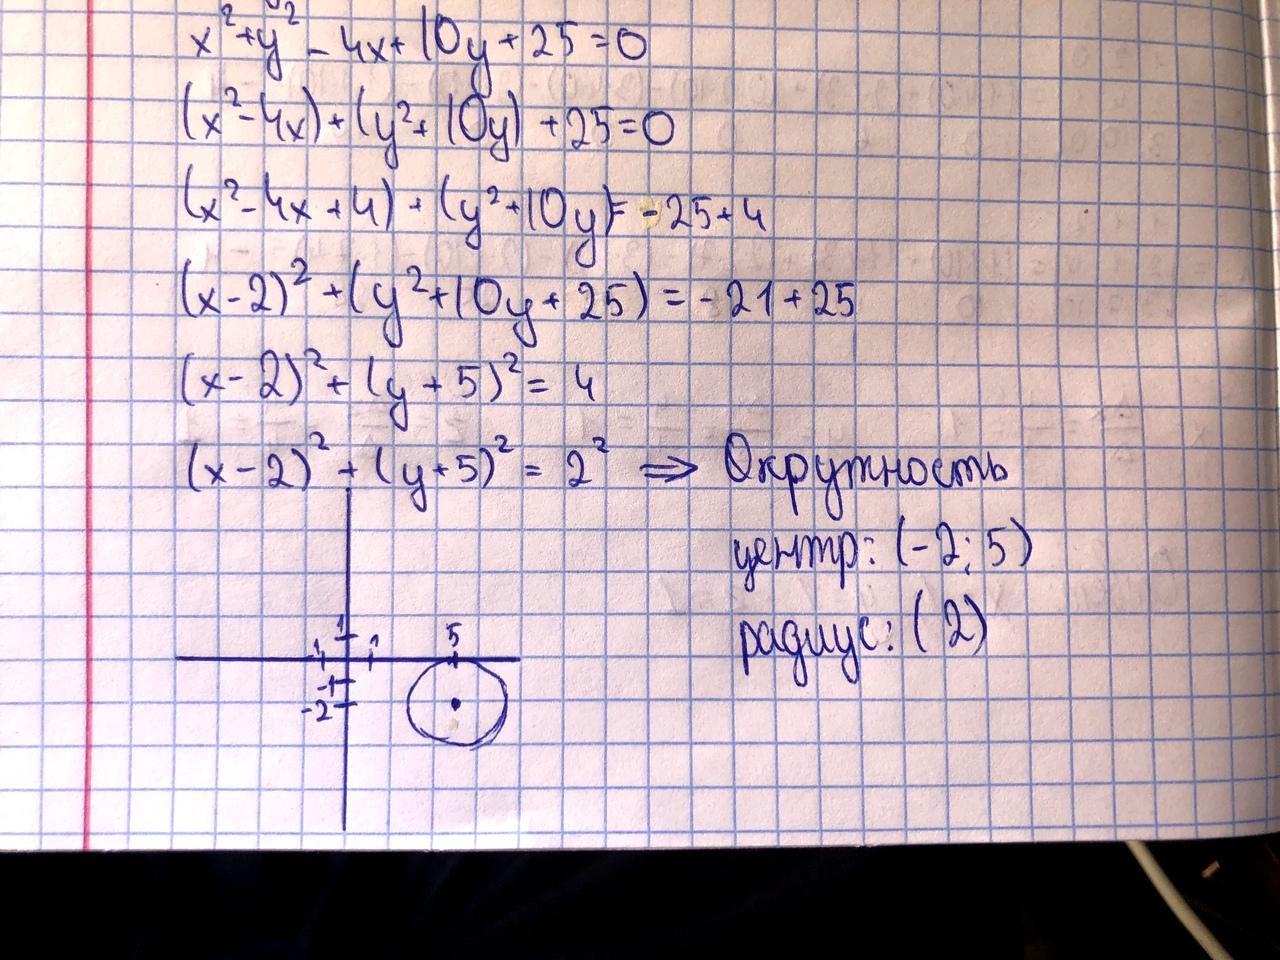 x²+y²-4x+10y+25=0
(x²-4x)+(y²+10y)+25=0
(x²-4x+4)+(y²+10y)=-25+4
(x-2)²+(y²+10y+25)=-21+25
(x-2)²+(y+5)²=4
(x-2)²+(y+5)²=2² ⇒ Окружность
центр: (-2;5)
радиус: (2)
1
-1 1 5
-1
-2